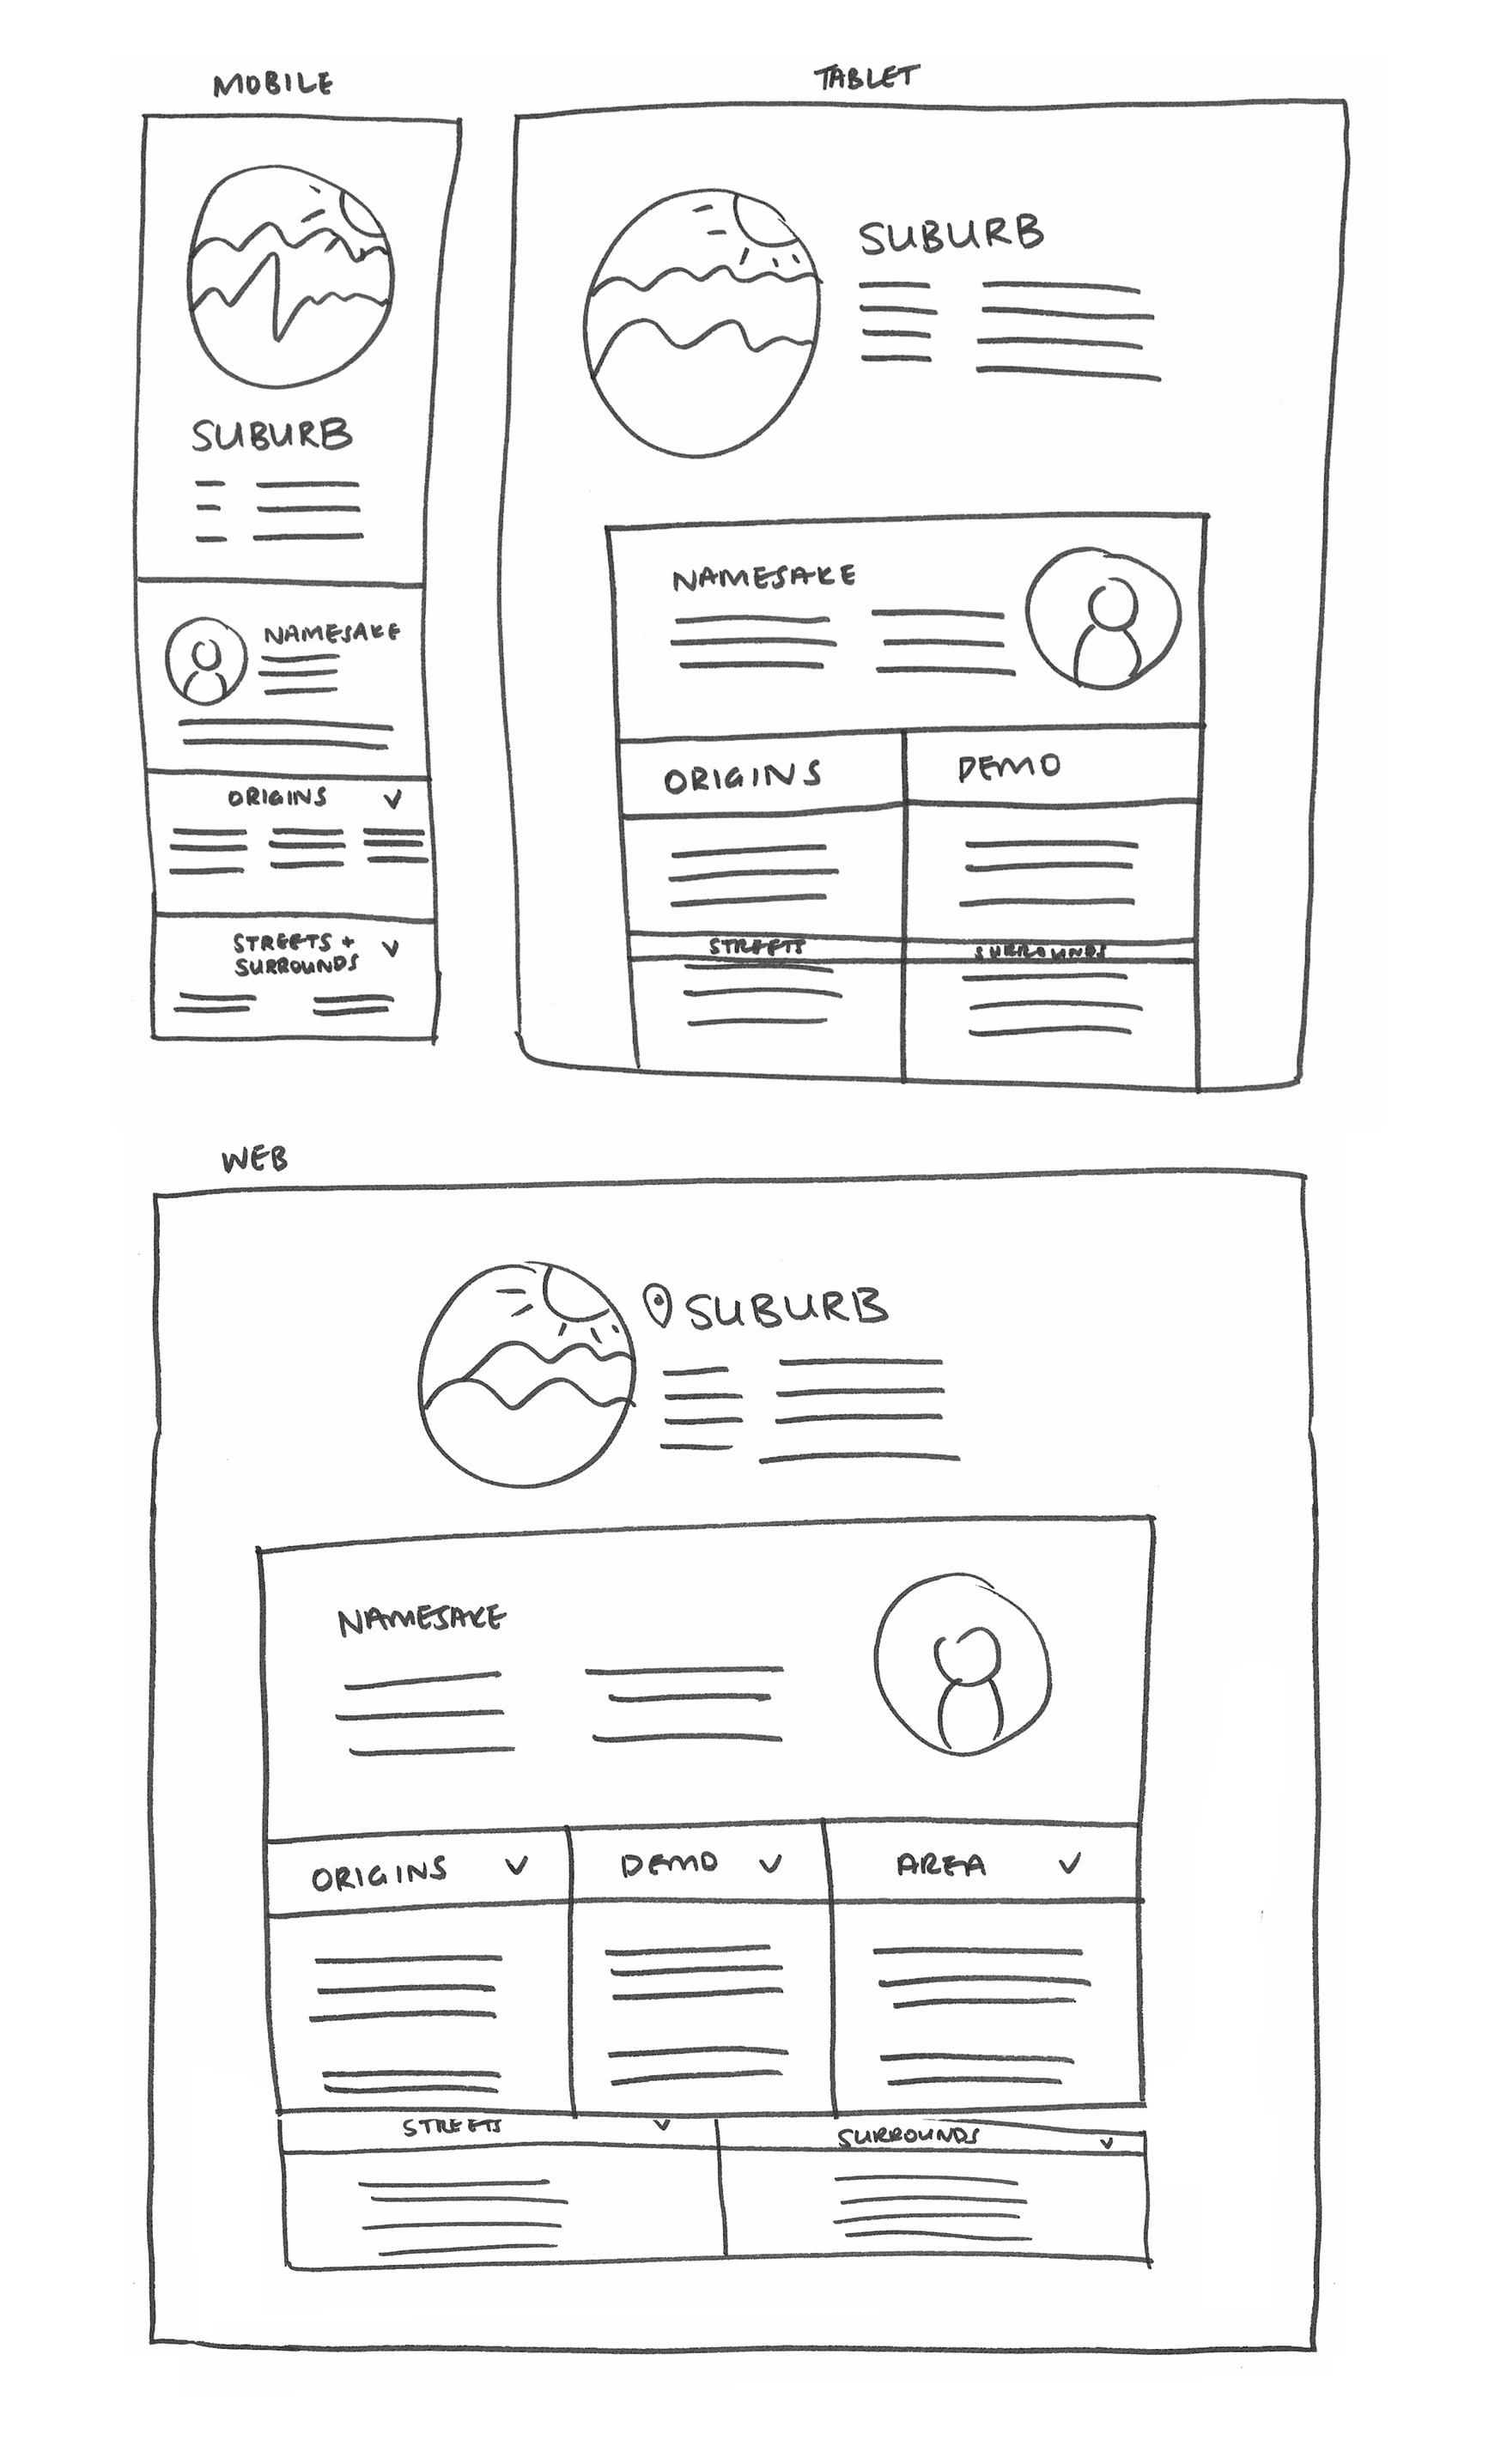 MOBILE
SUBURB
NAMESAKE
ORIGINS
STREETS +
SURROUNDS
TABLET
SUBURB
NAMESAKE
ORIGINS DEMO
STREETS SURROUNDS
WEB
SUBURB
NAMESAKE
ORIGINS DEMO AREA
STREETS SURROUNDS